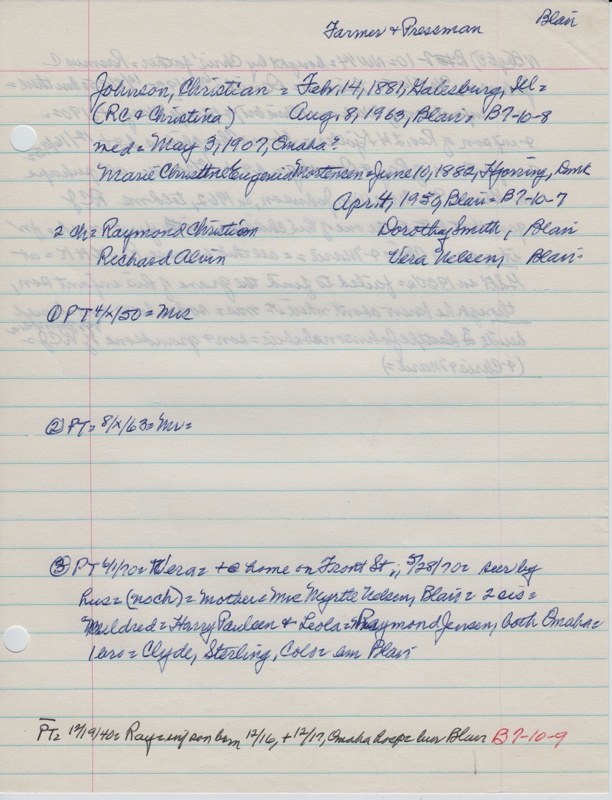 Farmer & Pressman Blair
Johnson, Christian = Feb. 14, 1881, Galesburg, Ill =
(RC & Christina) Aug. 8, 1963, Blair = B7-10-8
med = May 3, 1907, Omaha?
Marie Christine Eugenia Mortensen = June 10, 1882, Hjorring, Dmk
Apr. 4, 1950, Blair = B7-10-7
2 ch = Raymond Christian Dorothy Smith, Blair
Richard Alvin Vera Nelsen, Blair =
① PT 4/x/50 = Mrs
② PT = 8/x/63 = Mr =
③ PT 4/1/70 = Vera = + @ home on Front St., 5/28/70 = surr by
hus = (no ch) = mother = Mrs Myrtle Nelsen, Blair = 2 sis =
Mildred = Harry Paulsen & Leola = Raymond Jensen, both Omaha =
1 bro = Clyde, Sterling, Colo = bur Blair
PT = 12/19/40 = Ray = inf son born 12/16, + 12/17, Omaha hosp = bur Blair B7-10-9